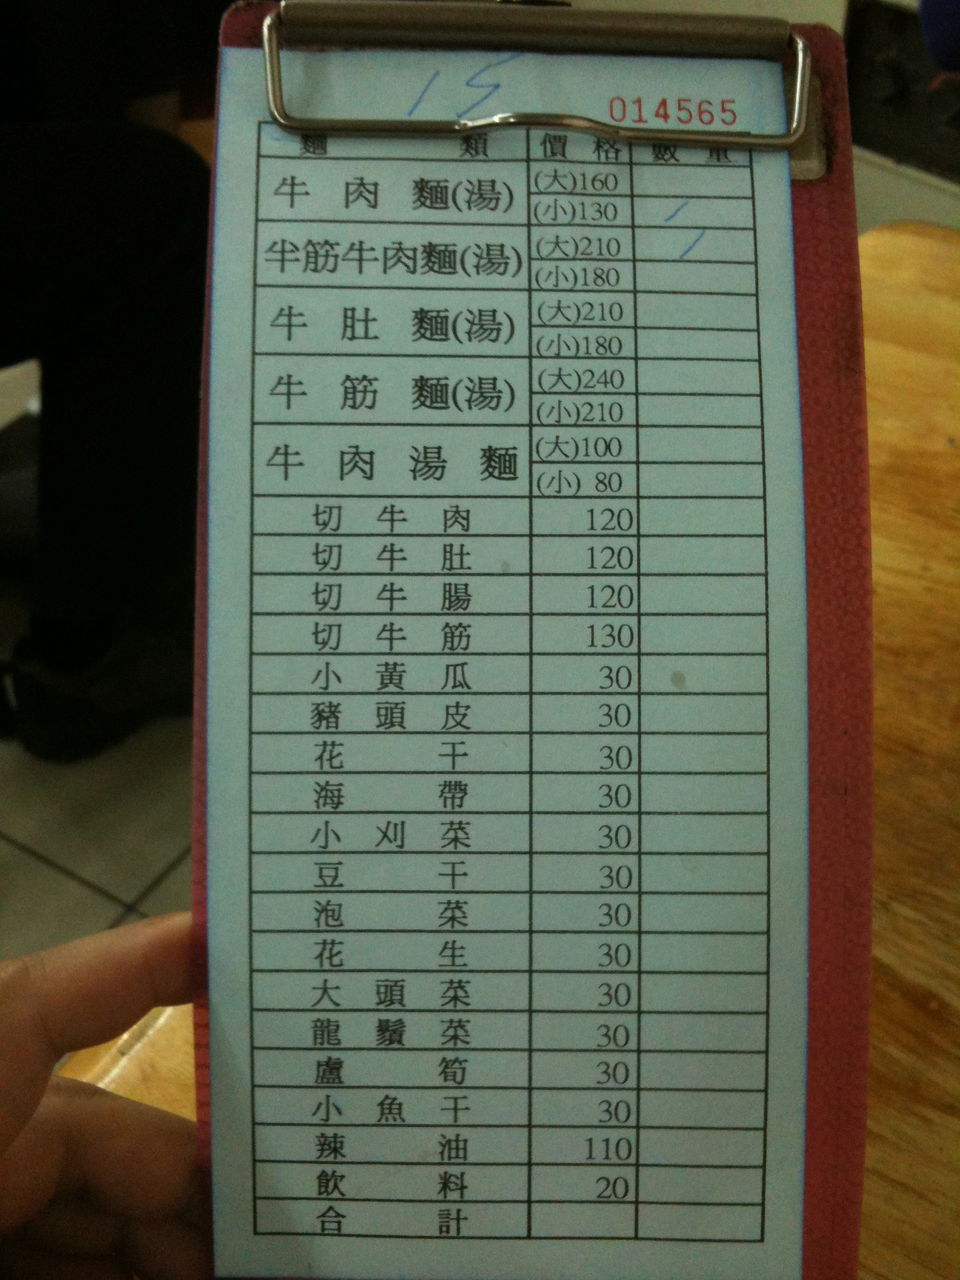 15
014565
麵類 價格 數量
牛肉麵(湯) (大)160
(小)130 /
半筋牛肉麵(湯) (大)210 /
(小)180
牛肚麵(湯) (大)210
(小)180
牛筋麵(湯) (大)240
(小)210
牛肉湯麵 (大)100
(小) 80
切牛肉 120
切牛肚 120
切牛腸 120
切牛筋 130
小黃瓜 30
豬頭皮 30
花干 30
海帶 30
小刈菜 30
豆干 30
泡菜 30
花生 30
大頭菜 30
龍鬚菜 30
盧筍 30
小魚干 30
辣油 110
飲料 20
合計